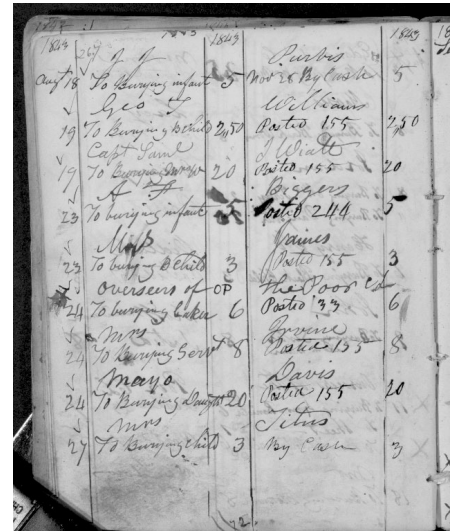 1843 1843 1843
267 J J Purvis
Aug 18 To Burying infant 5 Nov 28 By Cash 5
Geo T Williams
19 To Burying Child 2,50 Posted 155 2,50
Capt Saml J Wiatt
19 To Burying 20 Posted 155 20
A Biggers
23 To burying infant 5 Posted 244 5
Mrs Jaines
23 To burying Child 3 Posted 155 3
Overseers of OP the Poor
24 To burying 6 Posted 33 6
Mrs Irvine
24 To Burying Servt 8 Posted 155 8
Mayo Davis
24 To Burying Daught 20 Posted 155 20
Mrs Titus
27 To Burying Child 3 By Cash 3
72